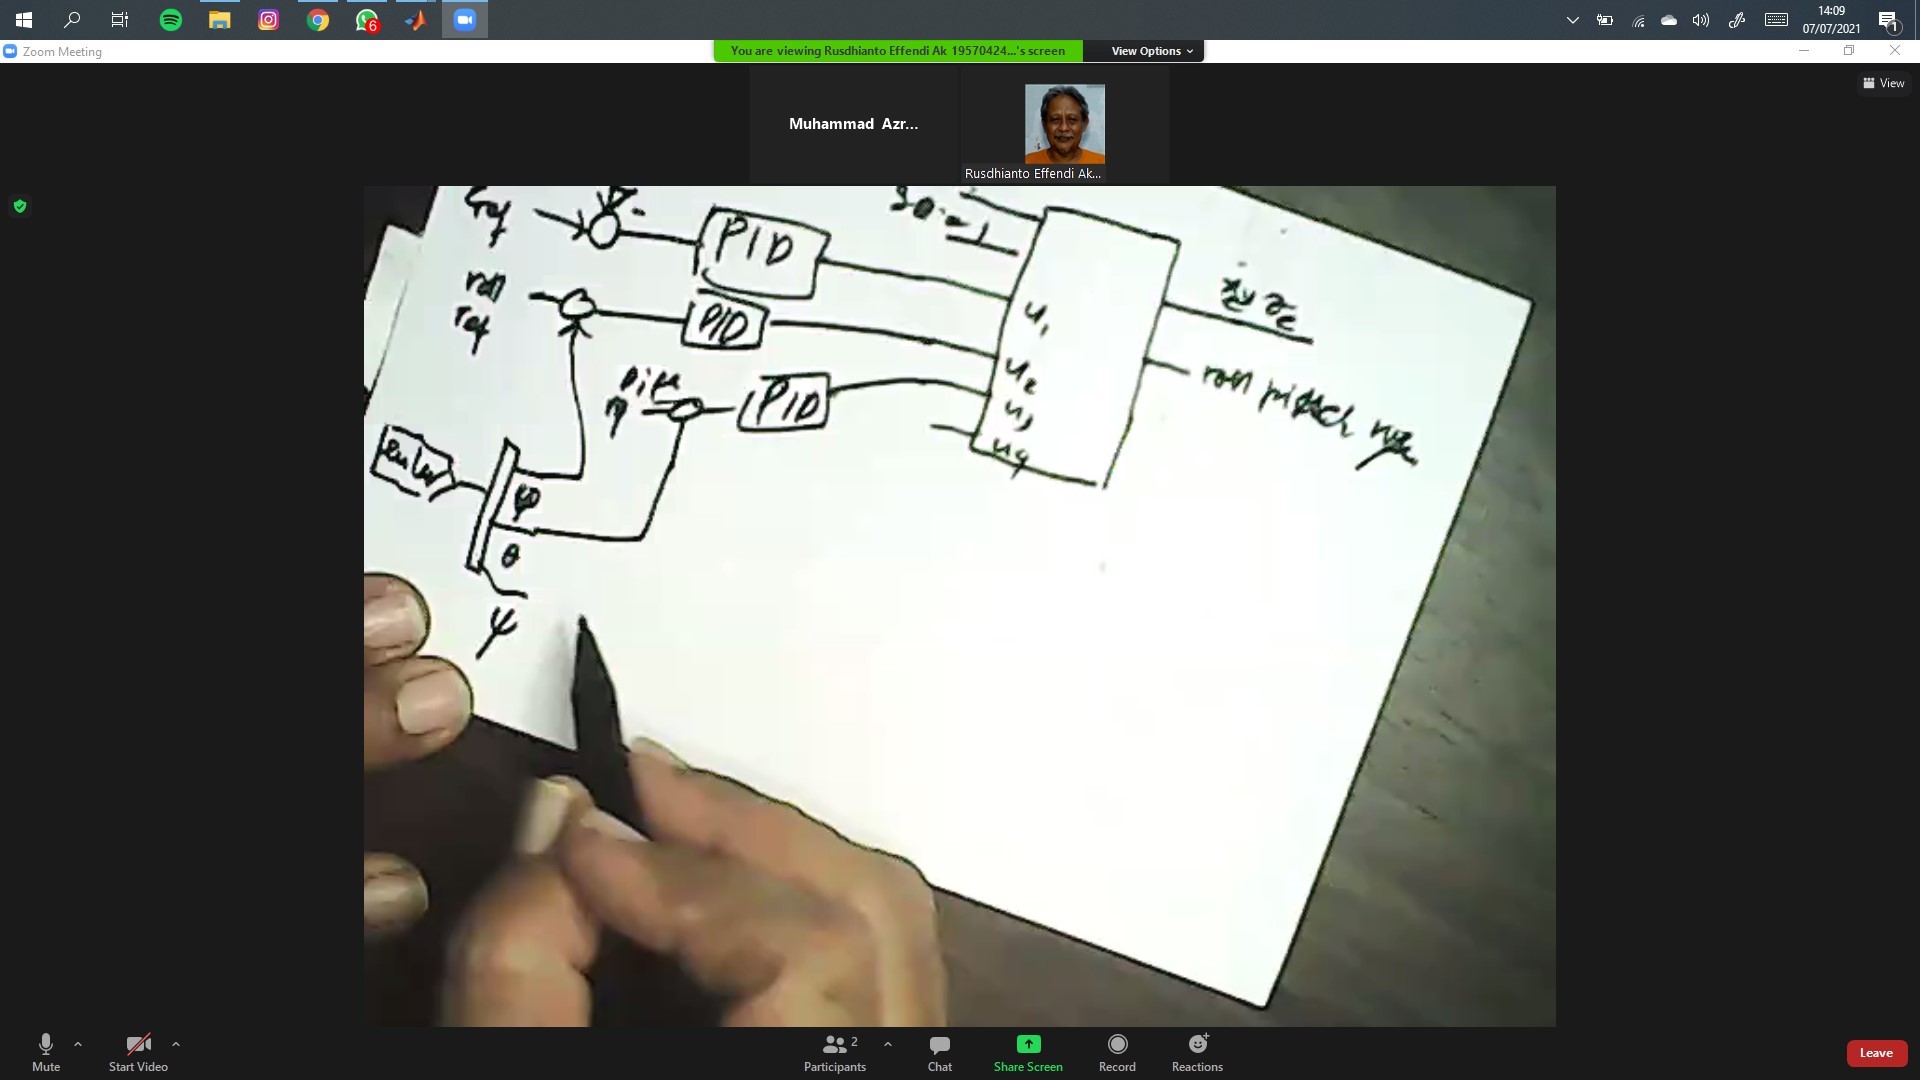 6
14:09
07/07/2021
1
Zoom Meeting
You are viewing Rusdhianto Effendi Ak 19570424...'s screen
View Options
View
Muhammad Azr...
Rusdhianto Effendi Ak...
ref
PID
roll
ref
PID
PID
u₁
u₂
u₃
u₄
x y z
roll pitch
φ
θ
ψ
Mute
Start Video
Participants
2
Chat
Share Screen
Record
Reactions
Leave